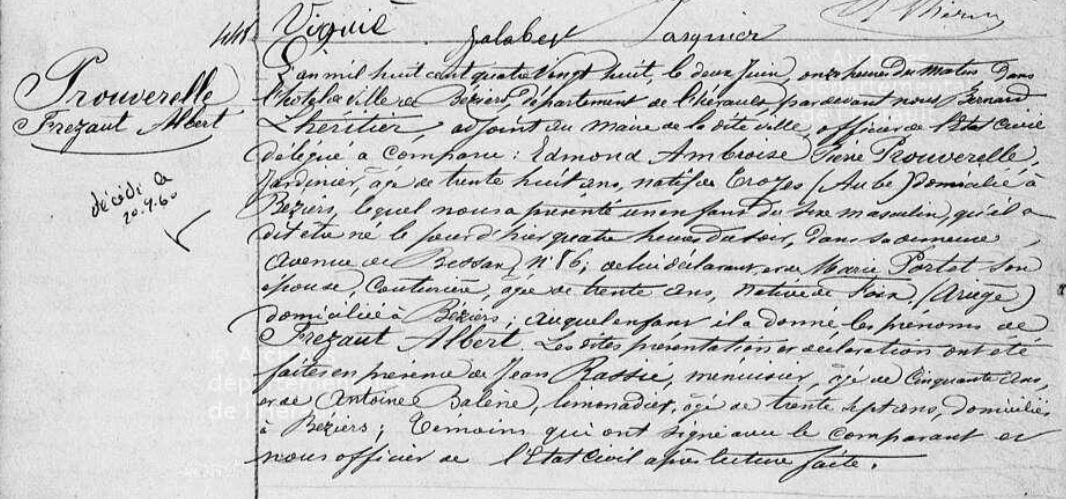 448
Viguié Jalabert
Prouverelle
Frezaut Albert
décédé à
20.9.60
L'an mil huit cent quatre vingt huit, le deux Juin, onze heures du matin dans
l'hotel de Ville de Béziers, département de l'hérault, pardevant nous, Bernard
Lhéritier, adjoint au maire de la dite ville, officier de l'Etat Civil
délégué a comparu : Edmond Ambroise Pierre Prouverelle,
Jardinier, âgé de trente huit ans, natif de Troyes (Aube) domicilié à
Béziers, lequel nous a présenté un enfant du sexe masculin, qu'il a
dit être né le jour d'hier quatre heures du soir, dans sa demeure
Avenue de Bessan, N° 86; de lui déclarant, et de Marie Portet son
épouse, Couturière, âgée de trente ans, native de Foix, (Ariège)
domiciliée à Béziers; auquel enfant il a donné les prénoms de
Frezaut Albert. Les dites présentation et déclaration ont été
faites en présence de Jean Rassié, menuisier, âgé de Cinquante ans,
et de Antoine Balène, limonadier, âgé de trente sept ans, domiciliés
à Béziers; Témoins qui ont signé avec le Comparant et
nous officier de l'Etat Civil après lecture faite.
© Archives
départementales
de l'Hérault